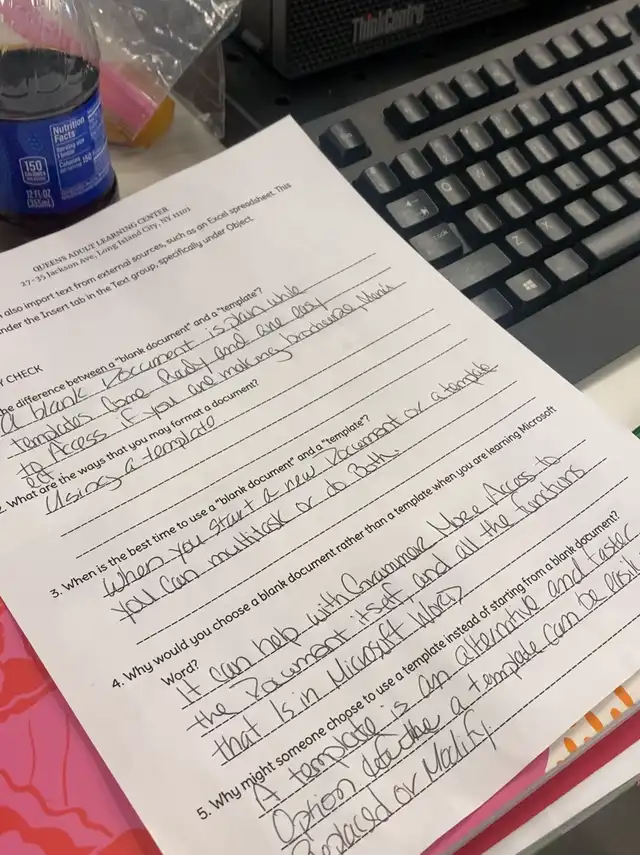 ThinkCentre
Nutrition
Facts
150
CALORIES
12 FL OZ
(355mL)
QUEENS ADULT LEARNING CENTER
27-35 Jackson Ave, Long Island City, NY 11101
also import text from external sources, such as an Excel spreadsheet. This
nder the Insert tab in the Text group, specifically under Object.
Y CHECK
he difference between a "blank document" and a "template"?
a blank Document is plain while
templates Come Ready and are easy
to Access if you are making brochures,
What are the ways that you may format a document?
Using a template
3. When is the best time to use a "blank document" and a "template"?
When you start a new Document or a template
you can multitask or do Both.
4. Why would you choose a blank document rather than a template when you are learning Microsoft
Word?
It can help with Grammar More Access to
the Document itself, and all the functions
that Is in Microsoft Word
5. Why might someone choose to use a template instead of starting from a blank document?
A template is an alternative and faster
Option a template can be easily
Replaced or Modify.